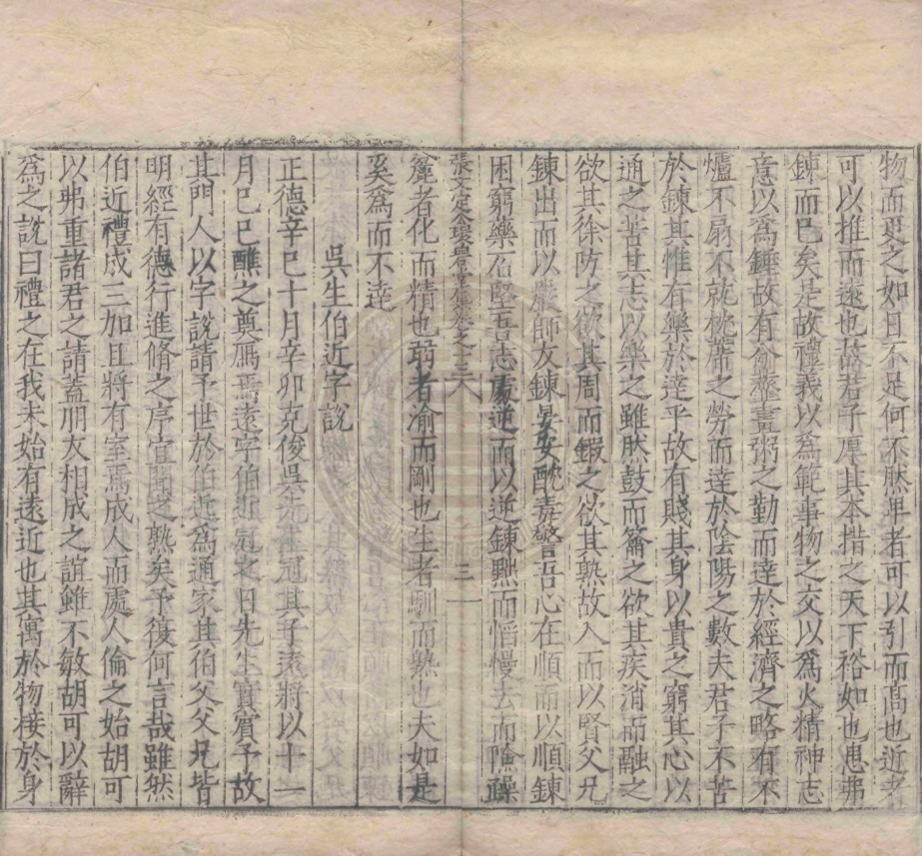 物而更之如日不足何不然卑者可以引而高也近者
可以推而遠也故君子厚其本措之天下裕如也患弗
鍊而已矣是故禮義以為範事物之交以為火精神志
意以為錘故有畫粥之勤而達於經濟之略有不
爐不扇不就枕席之勞而達於陰陽之數夫君子不苦
於鍊其惟有樂於達乎故有賤其身以貴之窮其心以
通之苦其志以樂之雖然鼓而籥之欲其疾消而融之
欲其徐防之欲其周而鍛之欲其熟故入而以賢父兄
鍊出而以嚴師友鍊晏安酖毒警吾心在順而以順鍊
困窮藥石堅吾志處逆而以逆鍊黙而慆慢去而險躁
張文定公環碧堂集卷之十 三
麄者化而精也弱者渝而剛也生者馴而熟也夫如是
奚為而不達
吳生伯近字說
正德辛巳十月辛卯克俊吳先生冠其子遠將以十一
月己巳醮之奠鴈焉遠字伯近冠之日先生實賓予故
其門人以字說請予世於伯近為通家其伯父父兄皆
明經有德行進脩之序宜聞之熟矣予復何言哉雖然
伯近禮成三加且將有室焉成人而處人倫之始胡可
以弗重諸君之請蓋朋友相成之誼雖不敏胡可以辭
為之說曰禮之在我未始有遠近也其寓於物接於身